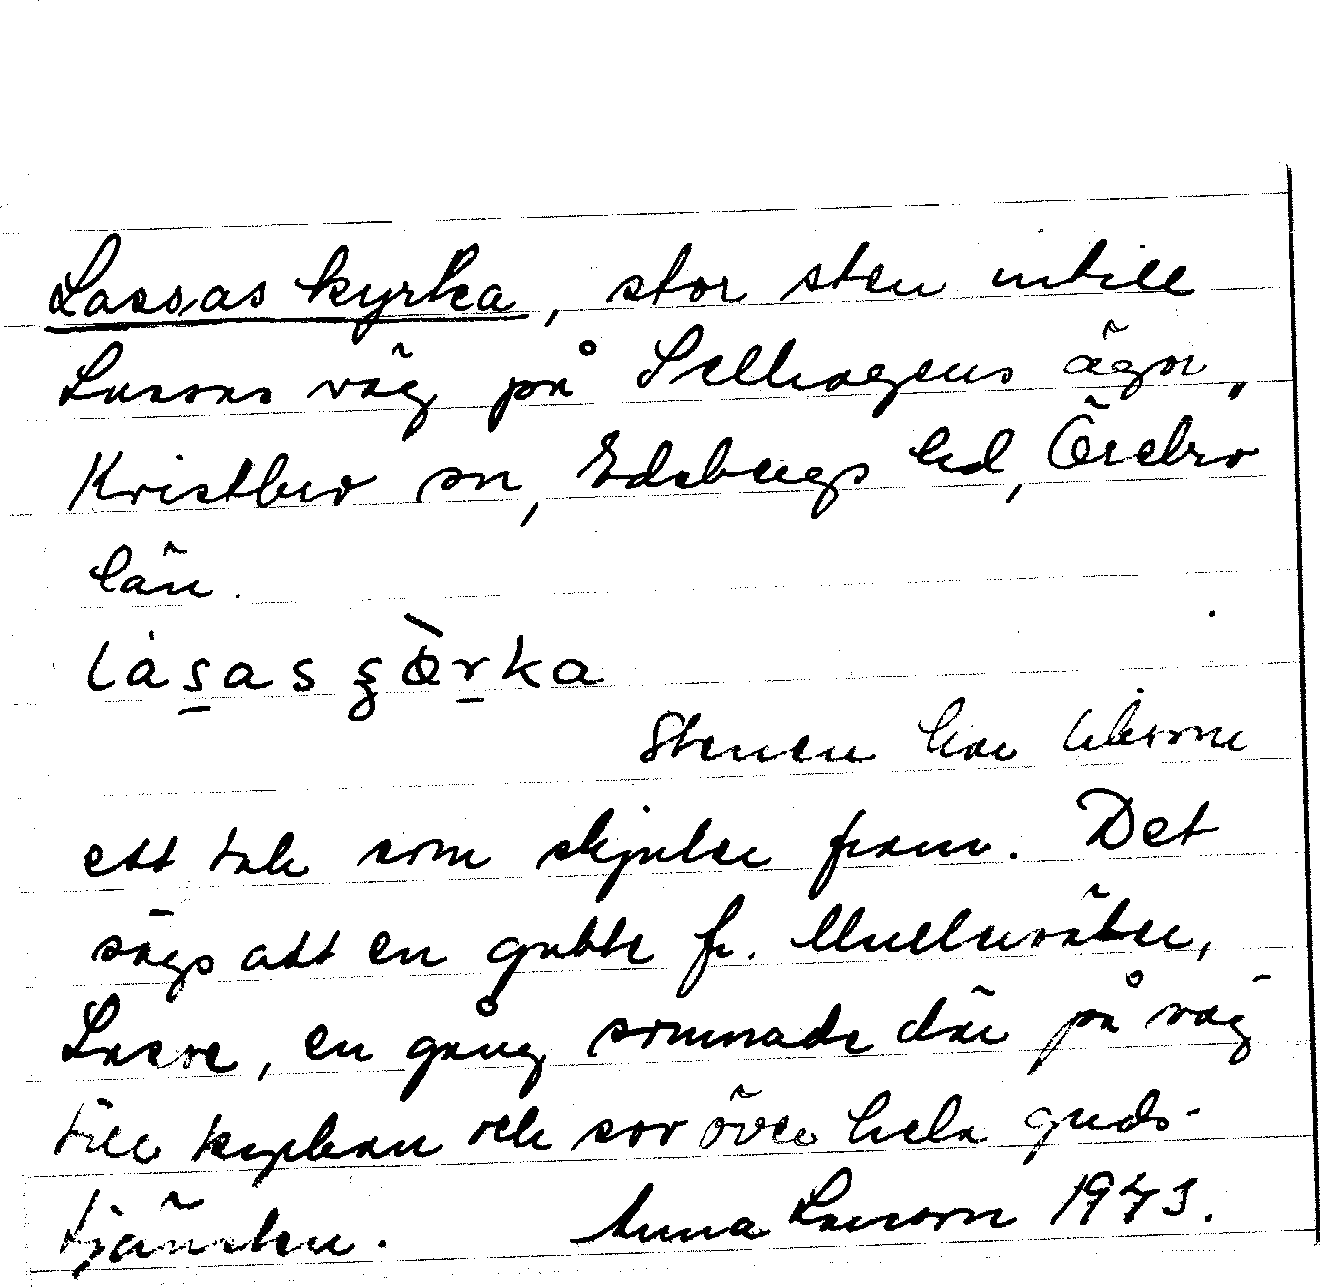 Lassas kyrka, stor sten intill
Lassas väg på Sellhagens ägor,
Kvistbro sn, Edsbergs hd, Örebro
län.
lȧs̠as ʂɵ̀r̠ka
Stenen har liksom
ett tak som skjuter fram. De​t
sägs att en gubbe fr. Mullersäter,
Lasse, en gång somnade där på väg
till kyrkan och sov över hela guds-
tjänsten. Anna Larsson 1943.